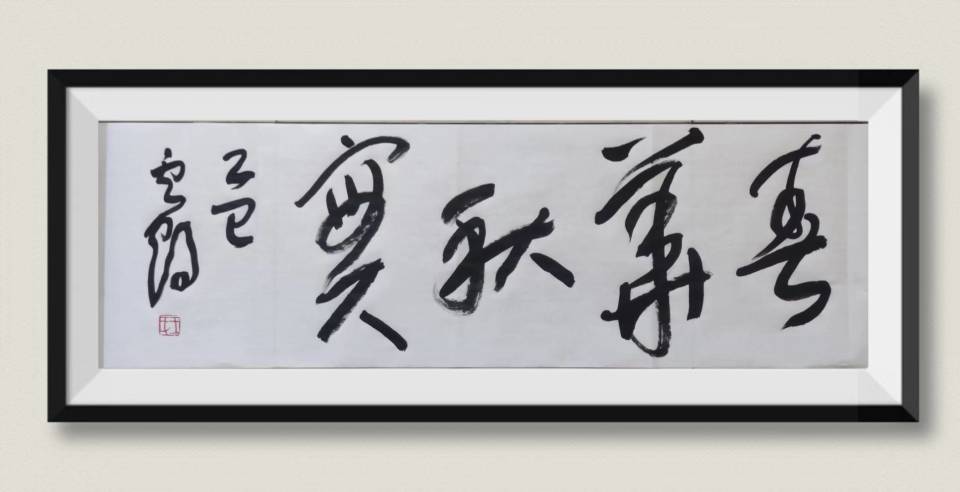 春
華
秋
實
乙巳